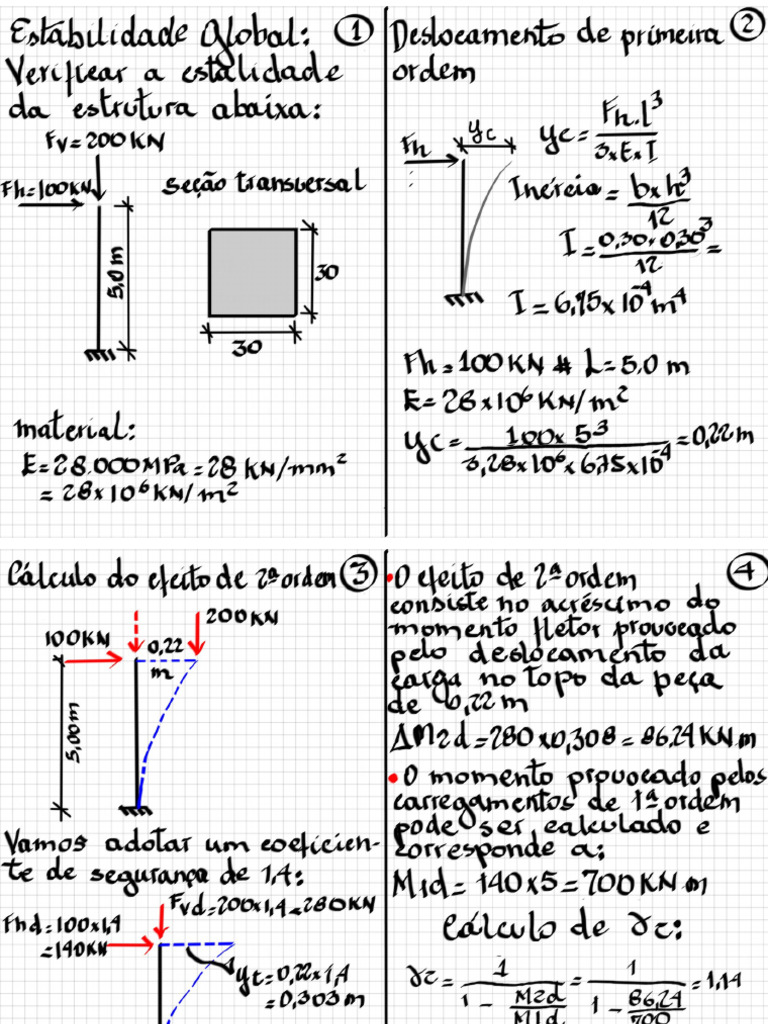 Estabilidade Global: 1
Verificar a estalidade
da estrutura abaixo:
Fv=200KN
Fh=100KN
seção transversal
5,0m
30
30
material:
E=28.000MPa=28 KN/mm²
=28x10⁶KN/m²
Deslocamento de primeira 2
ordem
Fh
yc
yc=Fh.l³/3xExI
Inércia=bxh³/12
I=0,30x0,30³/12=
I=6,75x10⁻⁴m⁴
Fh=100KN # L=5,0 m
E=28x10⁶KN/m²
yc=100x5³/3,28x10⁶x6,75x10⁻⁴=0,22m
Cálculo do efeito de 2ª ordem 3
200KN
100KN
0,22
m
5,00m
Vamos adotar um coeficien-
te de segurança de 1,4:
Fvd=200x1,4=280KN
Fhd=100x1,4
=140KN
yt=0,22x1,4
=0,303m
•O efeito de 2ª ordem 4
consiste no acréscimo do
momento fletor provocado
pelo deslocamento da
carga no topo da peça
de 0,22m
ΔM2d=280x0,308=86.24KN.m
•O momento provocado pelos
carregamentos de 1ª ordem
pode ser calculado e
corresponde a:
M1d=140x5=700KN.m
Cálculo de γz:
γz=1/1-M2d/M1d=1/1-86,24/700=1,14